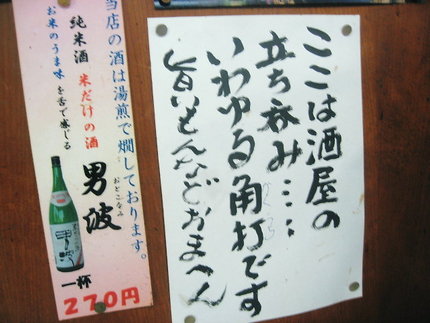 ここは酒屋の
立ち呑み…
いわゆる角打です
旨いもんなどおまへん
当店の酒は湯煎で燗しております。
純米酒 米だけの酒
お米のうま味を舌で感じる
男波
おとこなみ
一杯
270円